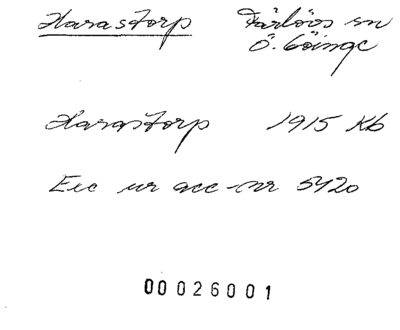 Harastorp Färlövs sn
Ö. Göinge
Harastorp 1915 Kb
Exc ur acc-nr 5420
00026001